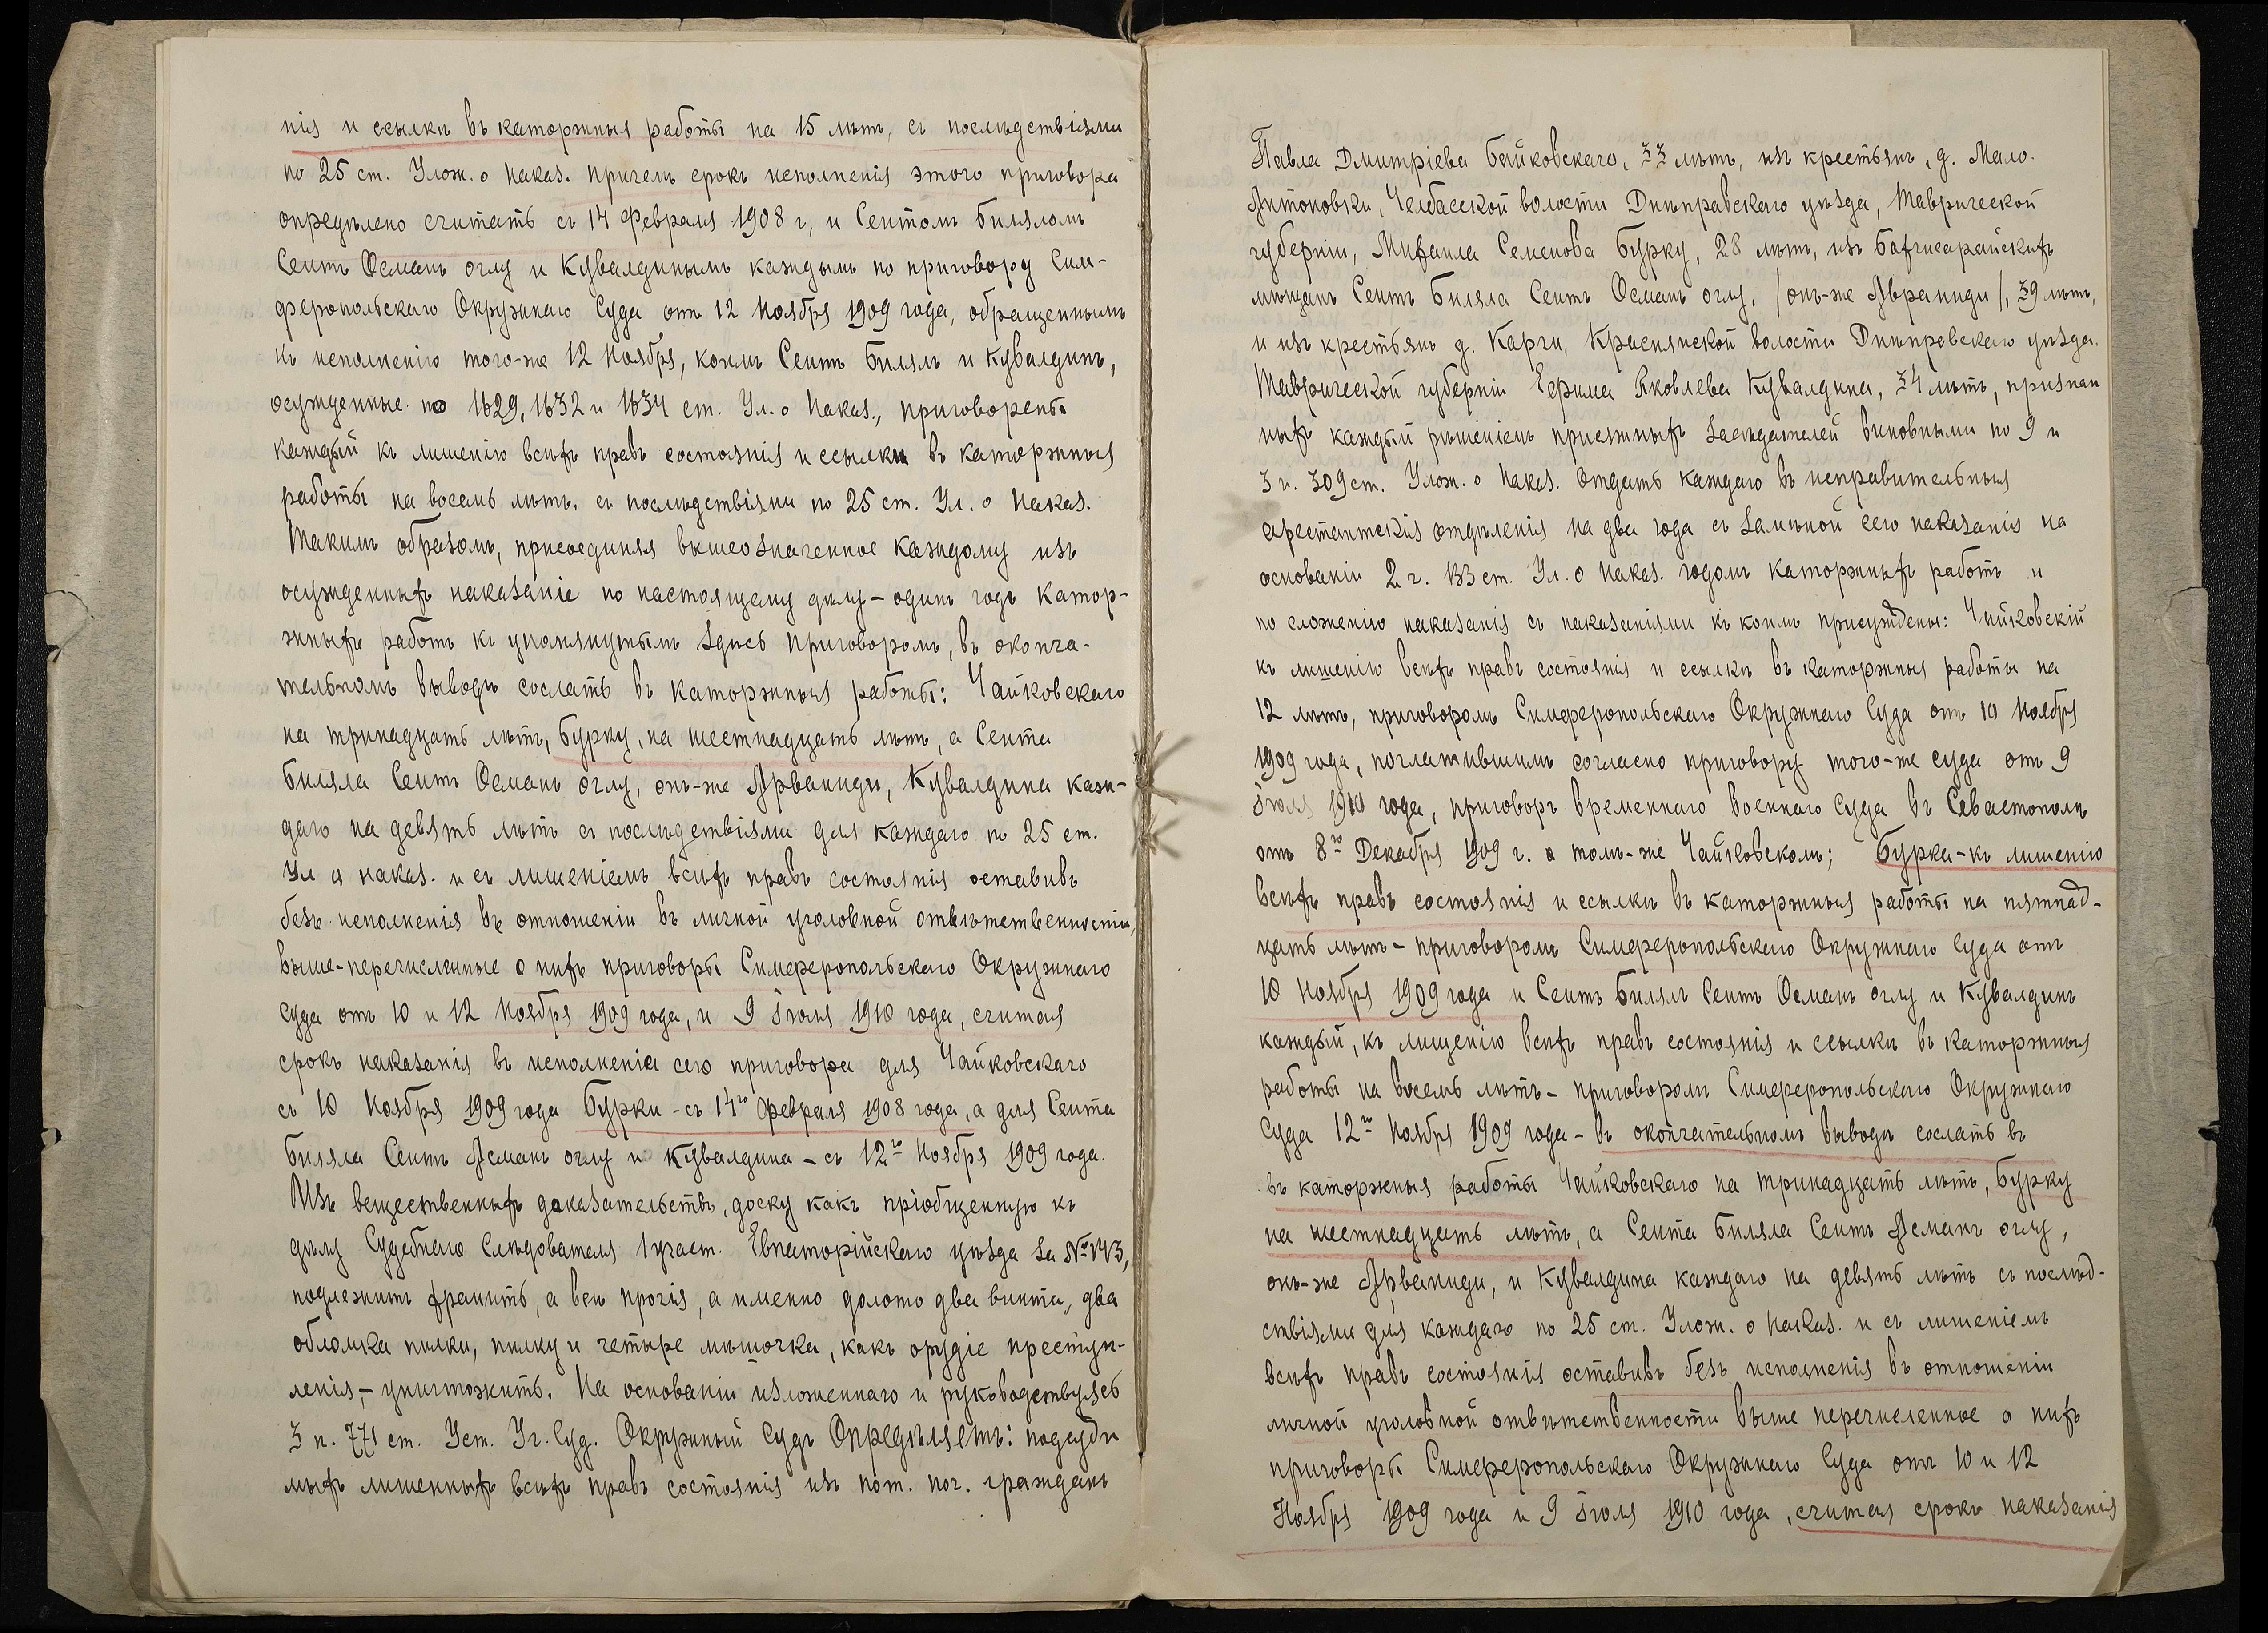 нія и ссылкѣ въ каторжныя работы на 15 лѣтъ, съ послѣдствіями
по 25 ст. Улож. о Наказ. причемъ срокъ исполненія этого приговора
опредѣлено считать съ 14 февраля 1908 г, и Сеитомъ Билялом
Сеитъ Османъ оглу и Кувалдинымъ каждымъ по приговору Сим-
феропольскаго Окружнаго Суда отъ 12 Ноября 1909 года, обращеннымъ
къ исполненію того-же 12 Ноября, коимъ Сеитъ Билялъ и Кувалдинъ,
осужденные по 1629, 1632 и 1634 ст. Ул. о Наказ., приговорены
каждый къ лишенію всѣхъ правъ состоянія и ссылкѣ въ каторжныя
работы на восемь лѣтъ, съ послѣдствіями по 25 ст. Ул. о Наказ.
Такимъ образомъ, присоединяя вышеозначенное каждому изъ
осужденныхъ наказаніе по настоящему дѣлу – одинъ годъ катор-
жныхъ работъ къ упомянутымъ здѣсь приговоромъ, въ оконча-
тельномъ выводѣ сослать въ каторжныя работы: Чайковскаго
на тринадцать лѣтъ, Бурку, на шестнадцать лѣтъ, а Сеита
Биляла Сеитъ Османъ оглу, онъ-же Арваниди, Кувалдина каж-
даго на девять лѣтъ съ послѣдствіями для каждаго по 25 ст.
Ул о наказ. и съ лишеніемъ всѣхъ правъ состоянія оставивъ
безъ исполненія въ отношеніи въ личной уголовной отвѣтственности,
выше-перечисленные о нихъ приговоры Симферопольскаго Окружнаго
Суда отъ 10 и 12 Ноября 1909 года, и 9 Іюля 1910 года, считая
срокъ наказанія въ исполненіи сего приговора для Чайковскаго
съ 10 Ноября 1909 года Бурки - съ 14го февраля 1908 года, а для Сеита
Биляла Сеитъ Асманъ оглу и Кувалдина – съ 12го Ноября 1909 года.
Изъ вещественныхъ доказательствъ, доску какъ пріобщенную къ
дѣлу Судебнаго Слѣдователя 1 участ. Евпаторійскаго уѣзда за №
подлежитъ хранить, а всѣ прочія, а именно долото два винта, два
обломка пилки, пилку и четыре мѣшочка, какъ орудіе преступ-
ленія, – уничтожить. На основаніи изложеннаго и руководствуясь
3 п. 771 ст. Уст. Уг. Суд. Окружный Судъ Опредѣляетъ: подсуди
мыхъ лишенныхъ всѣхъ правъ состоянія изъ пот. поч. гражданъ
Павла Дмитріева Чайковскаго, 33 лѣтъ, изъ крестьянъ, д. Мало.
Антоновки, Челбасской волости Днѣпровскаго уѣзда, Таврической
губерніи, Михаила Семенова Бурку, 28 лѣтъ, изъ Бахчисарайскихъ
мѣщанъ Сеитъ Биляла Сеитъ Османъ оглу, /онъ-же Арваниди/, 39 лѣтъ,
и изъ крестьянъ д. Карги, Краснянской волости Днѣпровскаго уѣзда.
Таврической губерніи Ефима Яковлева Кувалдина, 34 лѣтъ, признан
ныхъ каждый рѣшеніемъ присяжныхъ засѣдателей виновными по 9 и
3 ч. 309 ст. Улож. о Наказ. отдать каждаго въ исправительныя
арестантскія отдѣленія на два года съ замѣной сего наказанія на
основаніи 2 ч. 133 ст. Ул. о Наказ. годомъ каторжныхъ работъ и
по сложенію наказанія съ наказаніями къ коимъ присуждены: Чайковскій
къ лишенію всѣхъ правъ состоянія и ссылкѣ въ каторжныя работы на
12 лѣтъ, приговоромъ Симферопольскаго Окружнаго Суда отъ 10 Ноября
1909 года, поглатившимъ согласно приговору того-же суда отъ 9
Іюля 1910 года, приговоръ временнаго военнаго Суда въ Севастополѣ
отъ 8го Декабря 1909 г. о томъ-же Чайковскомъ; Бурка – къ лишенію
всѣхъ правъ состоянія и ссылкѣ въ каторжныя работы на пятнад-
цать лѣтъ – приговоромъ Симферопольскаго Окружнаго Суда отъ
10 Ноября 1909 года и Сеитъ Билялъ Сеитъ Османъ оглу и Кувалдинъ
каждый, къ лишенію всѣхъ правъ состоянія и ссылкѣ въ каторжныя
работы на восемь лѣтъ – приговоромъ Симферопольскаго Окружнаго
Суда 12го Ноября 1909 года – въ окончательномъ выводѣ сослать въ
въ каторжныя работы Чайковскаго на тринадцать лѣтъ, Бурку
на шестнадцать лѣтъ, а Сеита Биляла Сеитъ Асманъ оглу,
онъ-же Арваниди, и Кувалдина каждаго на девять лѣтъ съ послѣд-
ствіями для каждаго по 25 ст. Улож. о Наказ. и съ лишеніемъ
всѣхъ правъ состоянія оставивъ безъ исполненія въ отношеніи
личной уголовной отвѣтственности выше перечисленное о нихъ
приговоры Симферопольскаго Окружнаго Суда отъ 10 и 12
Ноября 1909 года и 9 Іюля 1910 года, считая срокъ наказанія